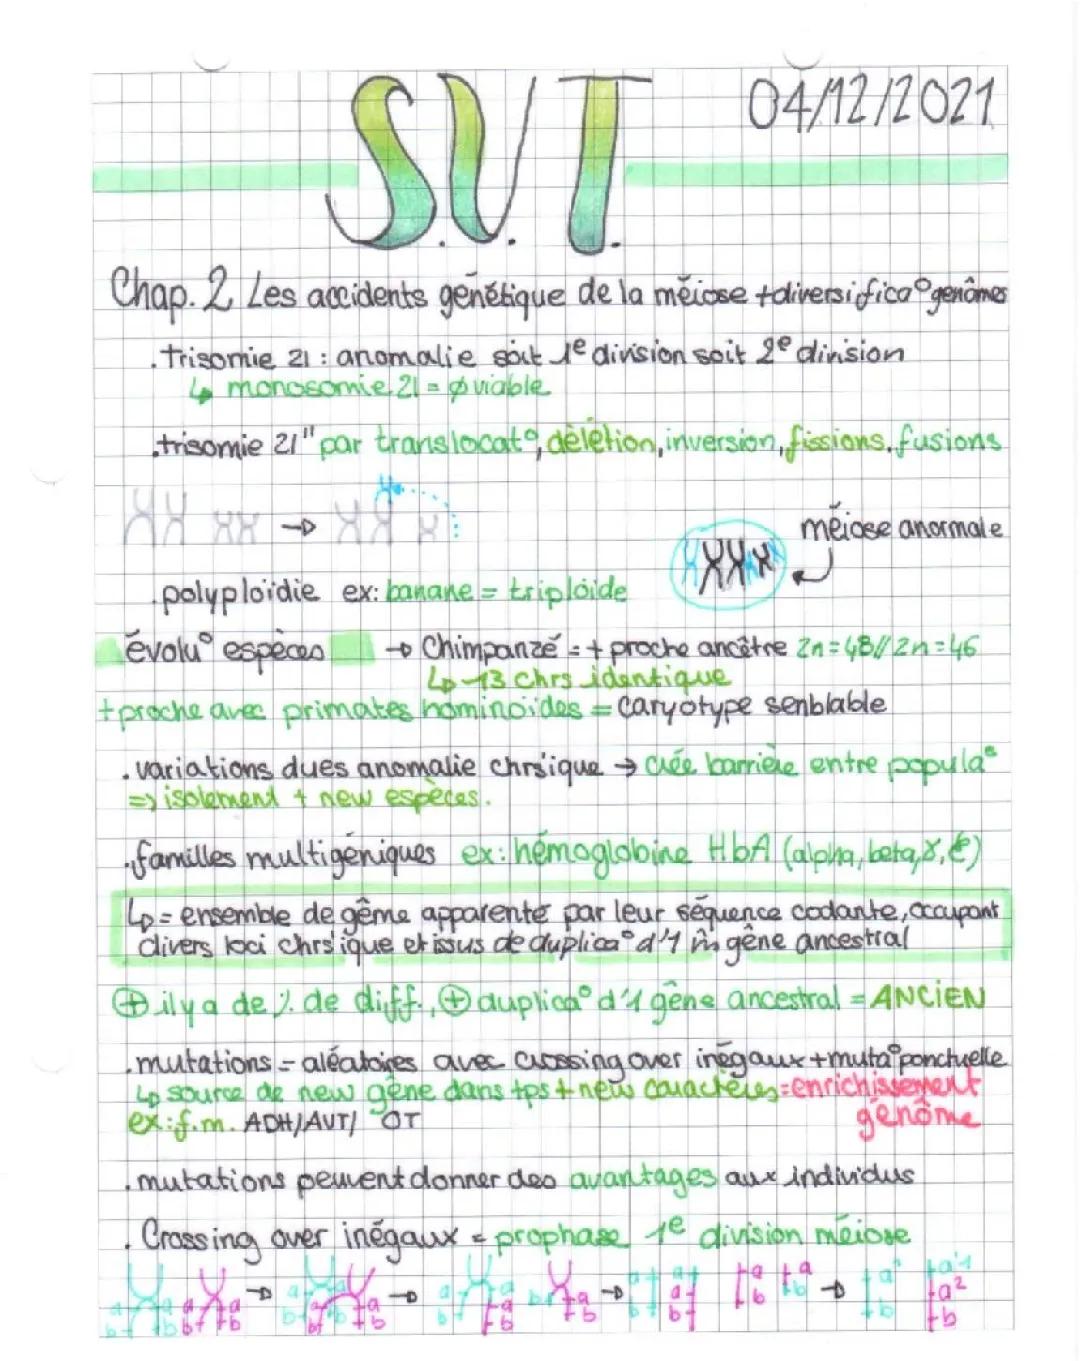 S.V.T.
04/12/2021
Chap. 2 Les accidents génétique de la méiose + diversifica° genômes
. trisomie 21 : anomalie soit 1e division soit 2e division
↳ monosomie 21 = ø viable
. trisomie 21" par translocat°, délétion, inversion, fissions, fusions
méiose anormale
. polyploïdie ex: banane = triploïde
évolu° espèces → Chimpanzé = + proche ancêtre 2n=48 // 2n=46
↳ 13 chrs identique
+ proche avec primates hominoïdes = caryotype senblable
. variations dues anomalie chrsique → crée barrière entre popula°
=> isolement + new espèces.
. familles multigéniques ex: hémoglobine HbA (alpha, beta, γ, ε)
↳ = ensemble de gême apparenté par leur séquence codante, occupant
divers loci chrsique et issus de duplica° d'1 m̂ gêne ancestral
⊕ il y a de % de diff., ⊕ duplica° d'1 gêne ancestral = ANCiEN
. mutations = aléatoires avec crossing over inégaux + muta° ponctuelle
↳ source de new gêne dans tps + new caractères = enrichissement
génôme
ex: f.m. ADH/AVT/ OT
. mutations peuvent donner des avantages aux individus
. Crossing over inégaux = prophase 1e division méiose